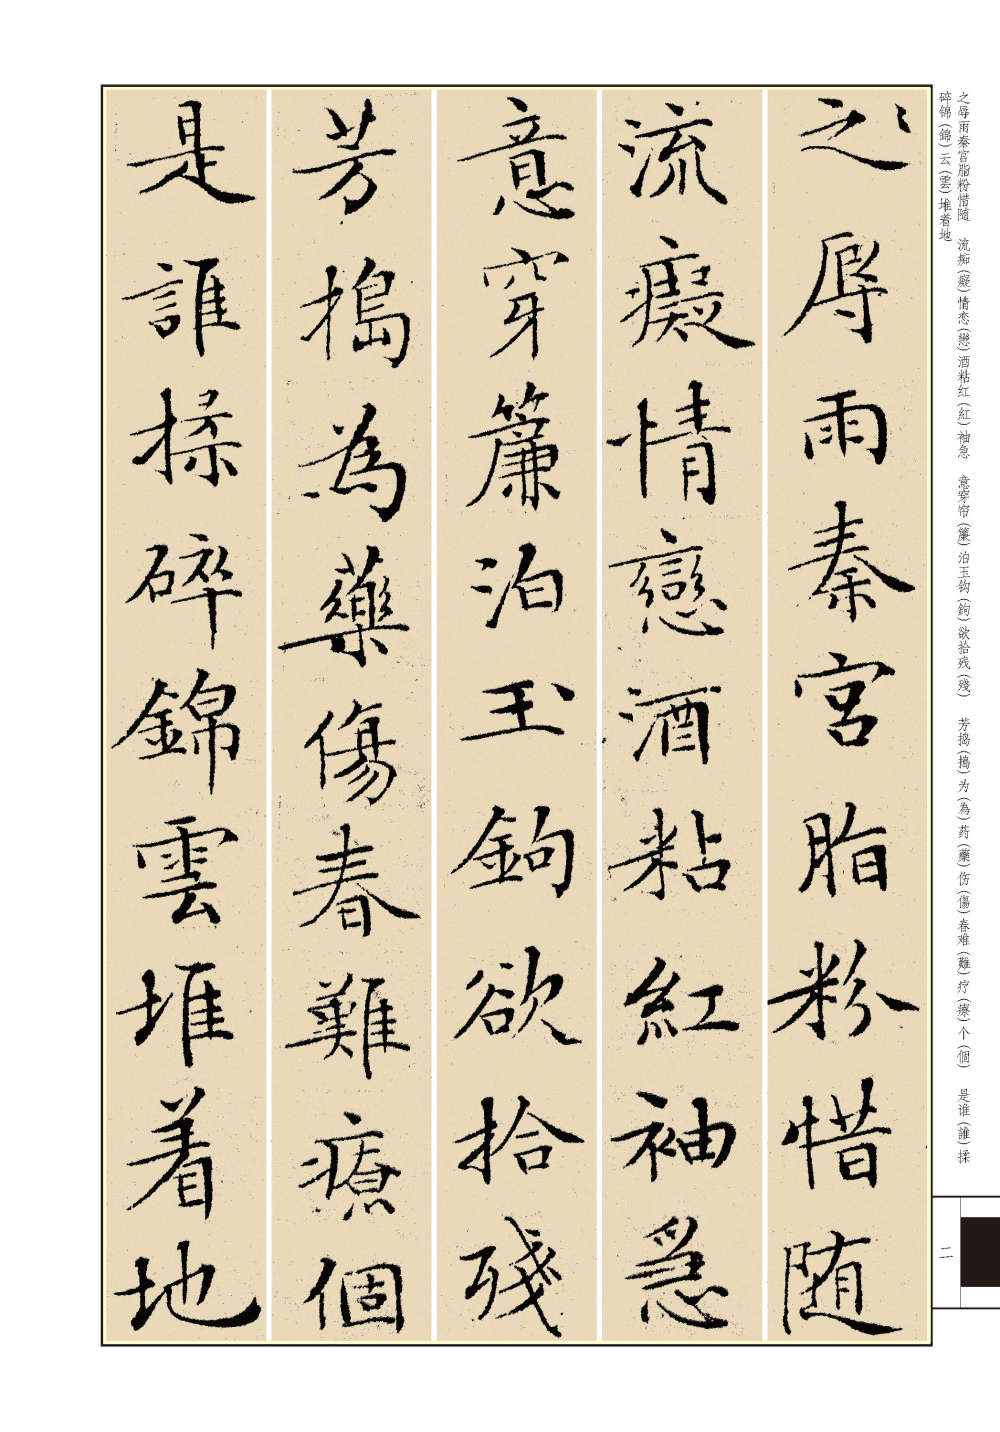 之辱雨秦宫脂粉惜随　流痴（癡）情恋（戀）酒粘红（紅）袖急　意穿帘（簾）泊玉钩（鉤）欲拾残（殘）　芳捣（搗）为（為）药（藥）伤（傷）春难（難）疗（療）个（個）　是谁（誰）揉
碎锦（錦）云（雲）堆着地
之辱雨秦宫脂粉惜随
流癡情戀酒粘紅袖急
意穿簾泊玉鉤欲拾殘
芳搗為藥傷春難療個
是誰揉碎錦雲堆着地
二